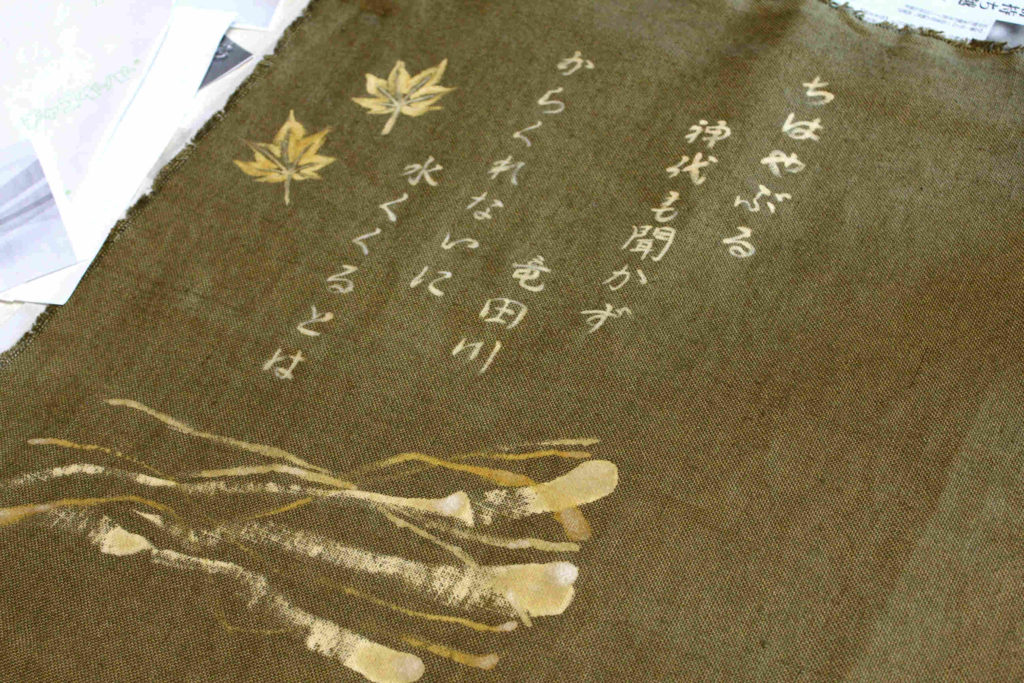 ちはやぶる
神代も聞かず
竜田川
からくれないに
水くくるとは